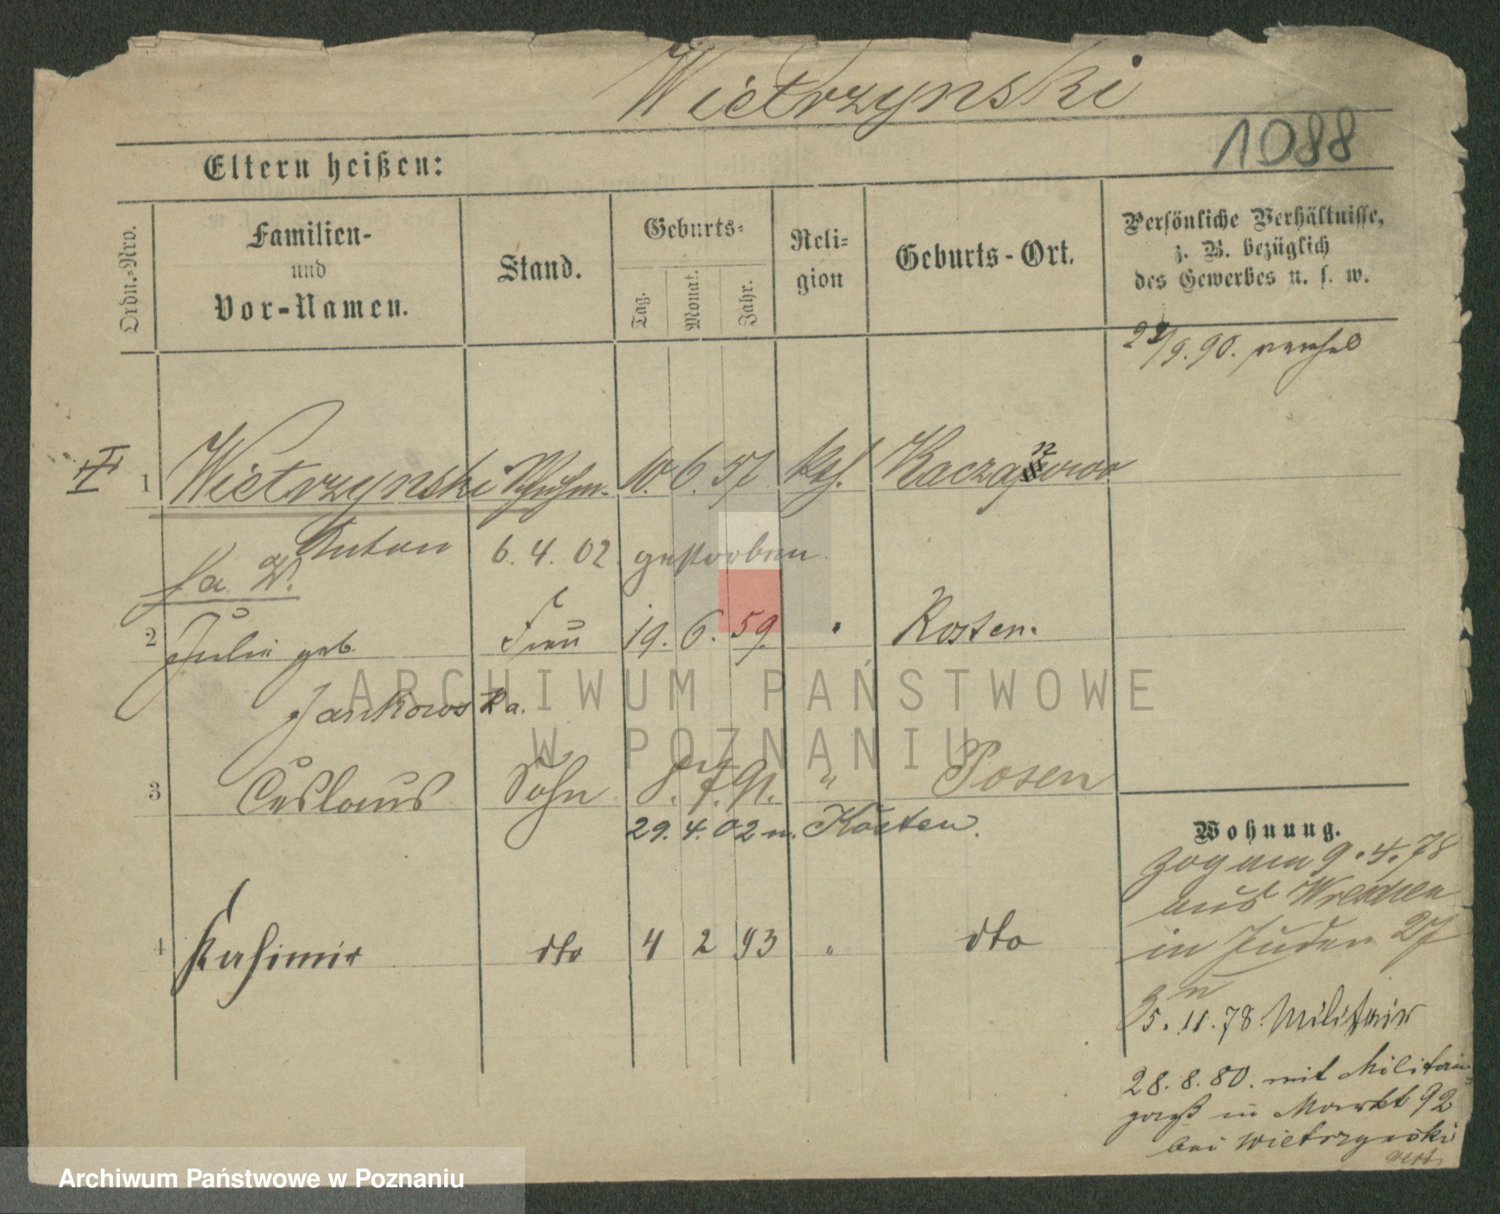 Wietrzynski
1088
Eltern heißen:
Ordn.-Nro.
Familien-
und
Vor-Namen.
Stand.
Geburts-
Tag.
Monat.
Jahr.
Reli-
gion
Geburts-Ort.
Persönliche Verhältnisse,
z. B. bezüglich
des Gewerbes u. s. w.
/9. 90.
1 Wietrzynski Schuhm. 10. 6. 57 kth.
Anton 6. 4. 02 gestorben
2 Julie geb. Frau 19. 6. 59. Kosten.
Jankowska.
3 Ceslaus Sohn 8. 7. 91. " Posen
29. 4. 02 n. Kosten.
4 Kasimir dto 4 2 93 " dto
Wohnung.
zog am 9. 4. 78
aus Wreschen
in Juden 27
5. 11. 78. Militair
28. 8. 80. mit Militair
in Markt 92
bei Wietrzynski
ARCHIWUM PAŃSTWOWE
W POZNANIU
Archiwum Państwowe w Poznaniu